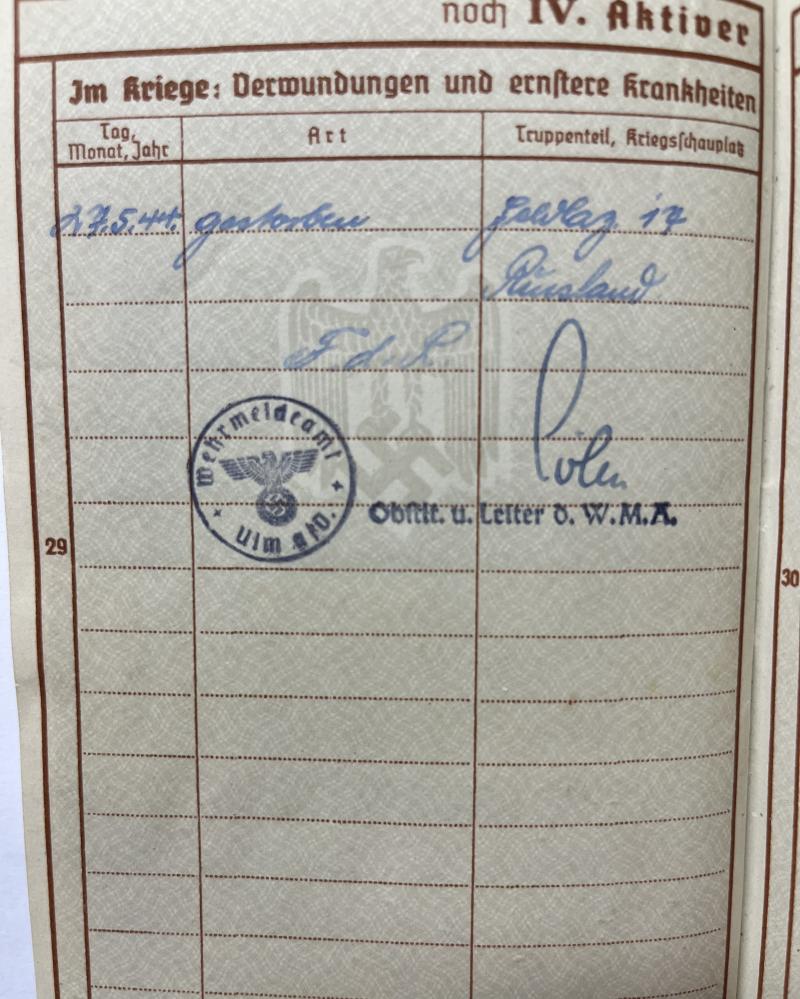 noch IV. Aktiver
Im Kriege: Verwundungen und ernstere Krankheiten
Tag, Monat, Jahr
Art
Truppenteil, Kriegsschauplatz
27.5.44. gestorben Feldlaz 17
Russland
F. d. R.
Wehrmeldeamt
Ulm a/D.
Obstlt. u. Leiter d. W.M.A.
29
30